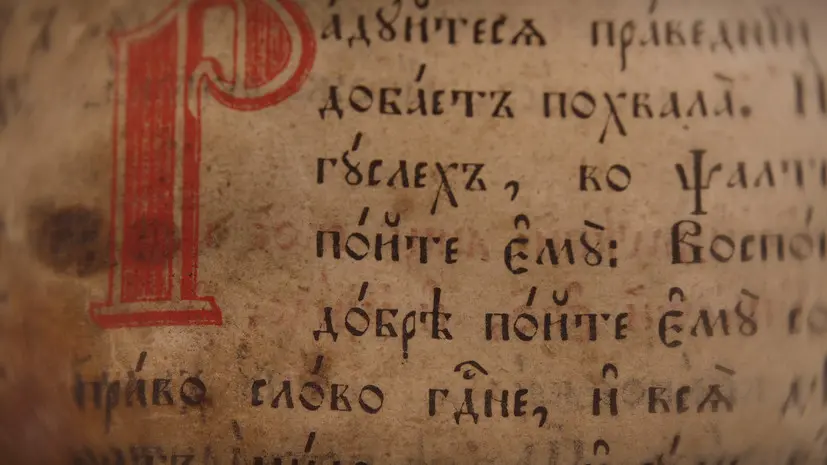 Ра́дꙋ́йтесѧ пра́веднїи
доба́етъ похвала̀.
гꙋ́слехъ, во ѱалти
по́йте є҆мꙋ̀: Воспо́
до́брѣ по́йте є҆мꙋ̀ со
пра́во сло́во гдⷭ҇не, и҆ всѧ̀